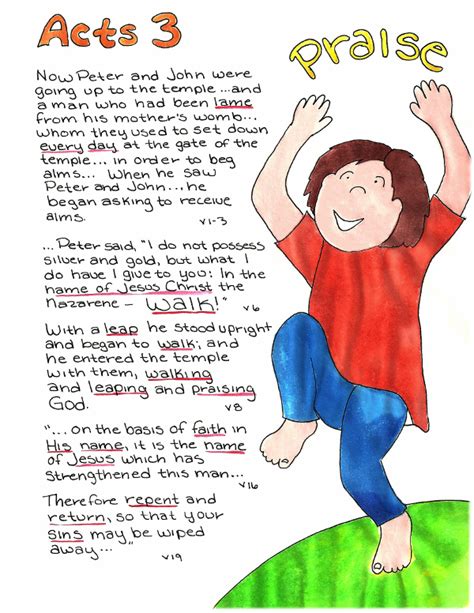 Acts 3
Praise
Now Peter and John were
going up to the temple...and
a man who had been lame
from his mother's womb...
whom they used to set down
every day at the gate of the
temple... in order to beg
alms... When he saw
Peter and John...he
began asking to receive
alms.
v1-3
...Peter said, "I do not possess
silver and gold, but what I
do have I give to you: In the
name of Jesus Christ the
Nazarene – walk!"
v6
With a leap he stood upright
and began to walk; and
he entered the temple
with them, walking
and leaping and praising
God.
v8
"... on the basis of faith in
His name, it is the name
of Jesus which has
strengthened this man...
v16
Therefore repent and
return, so that your
sins may be wiped
away...
v19